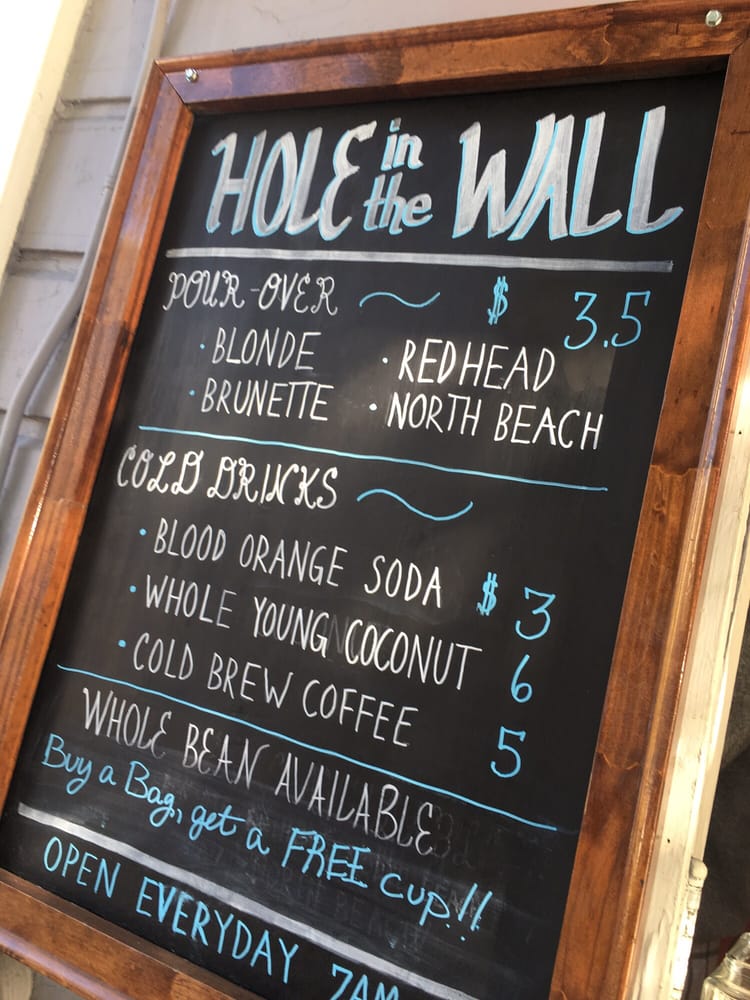 HOLE in the WALL
POUR-OVER ~ $ 3.5
· BLONDE · REDHEAD
· BRUNETTE · NORTH BEACH
COLD DRINKS ~
· BLOOD ORANGE SODA $ 3
· WHOLE YOUNG COCONUT 6
· COLD BREW COFFEE 5
WHOLE BEAN AVAILABLE
Buy a Bag, get a FREE cup!!
OPEN EVERYDAY 7AM